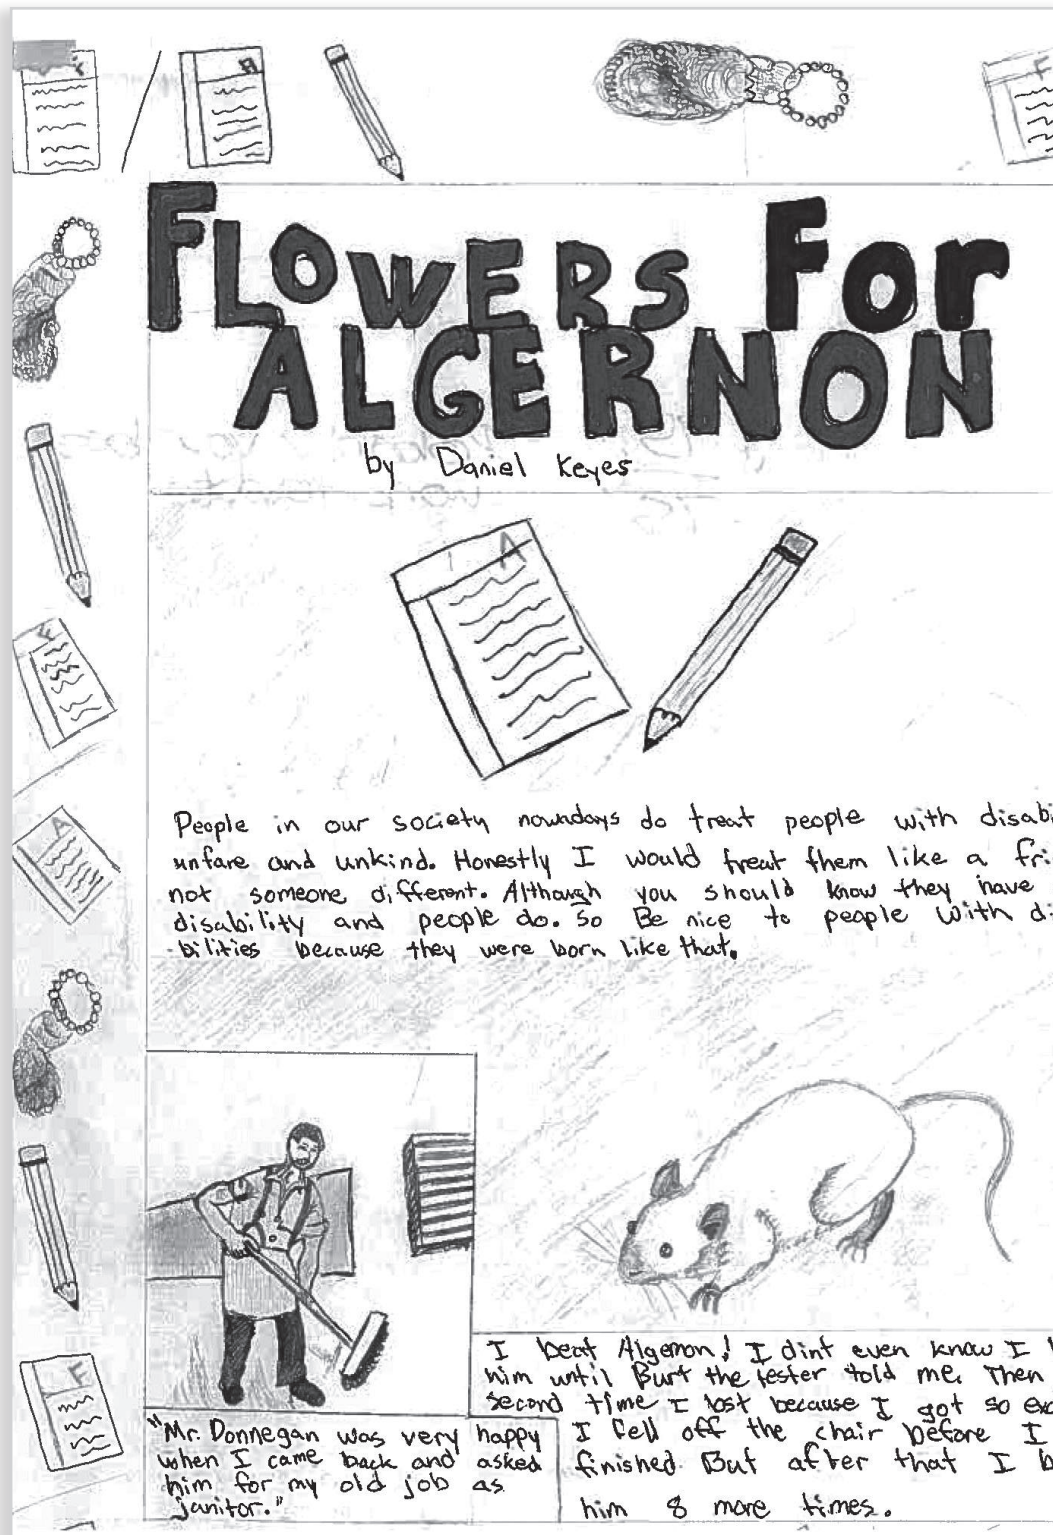 A
F
FLOWERS FOR
ALGERNON
by Daniel Keyes
A
F
A
F
People in our society nowadays do treat people with
unfare and unkind. Honestly I would treat them like a
not someone different. Although you should know they have
disability and people do. So Be nice to people with
-bilities because they were born like that.
"Mr. Donnegan was very happy
when I came back and asked
him for my old job as
janitor."
I beat Algernon! I dint even know I
him until Burt the tester told me. Then
second time I lost because I got so
I fell off the chair before I
finished. But after that I
him 8 more times.